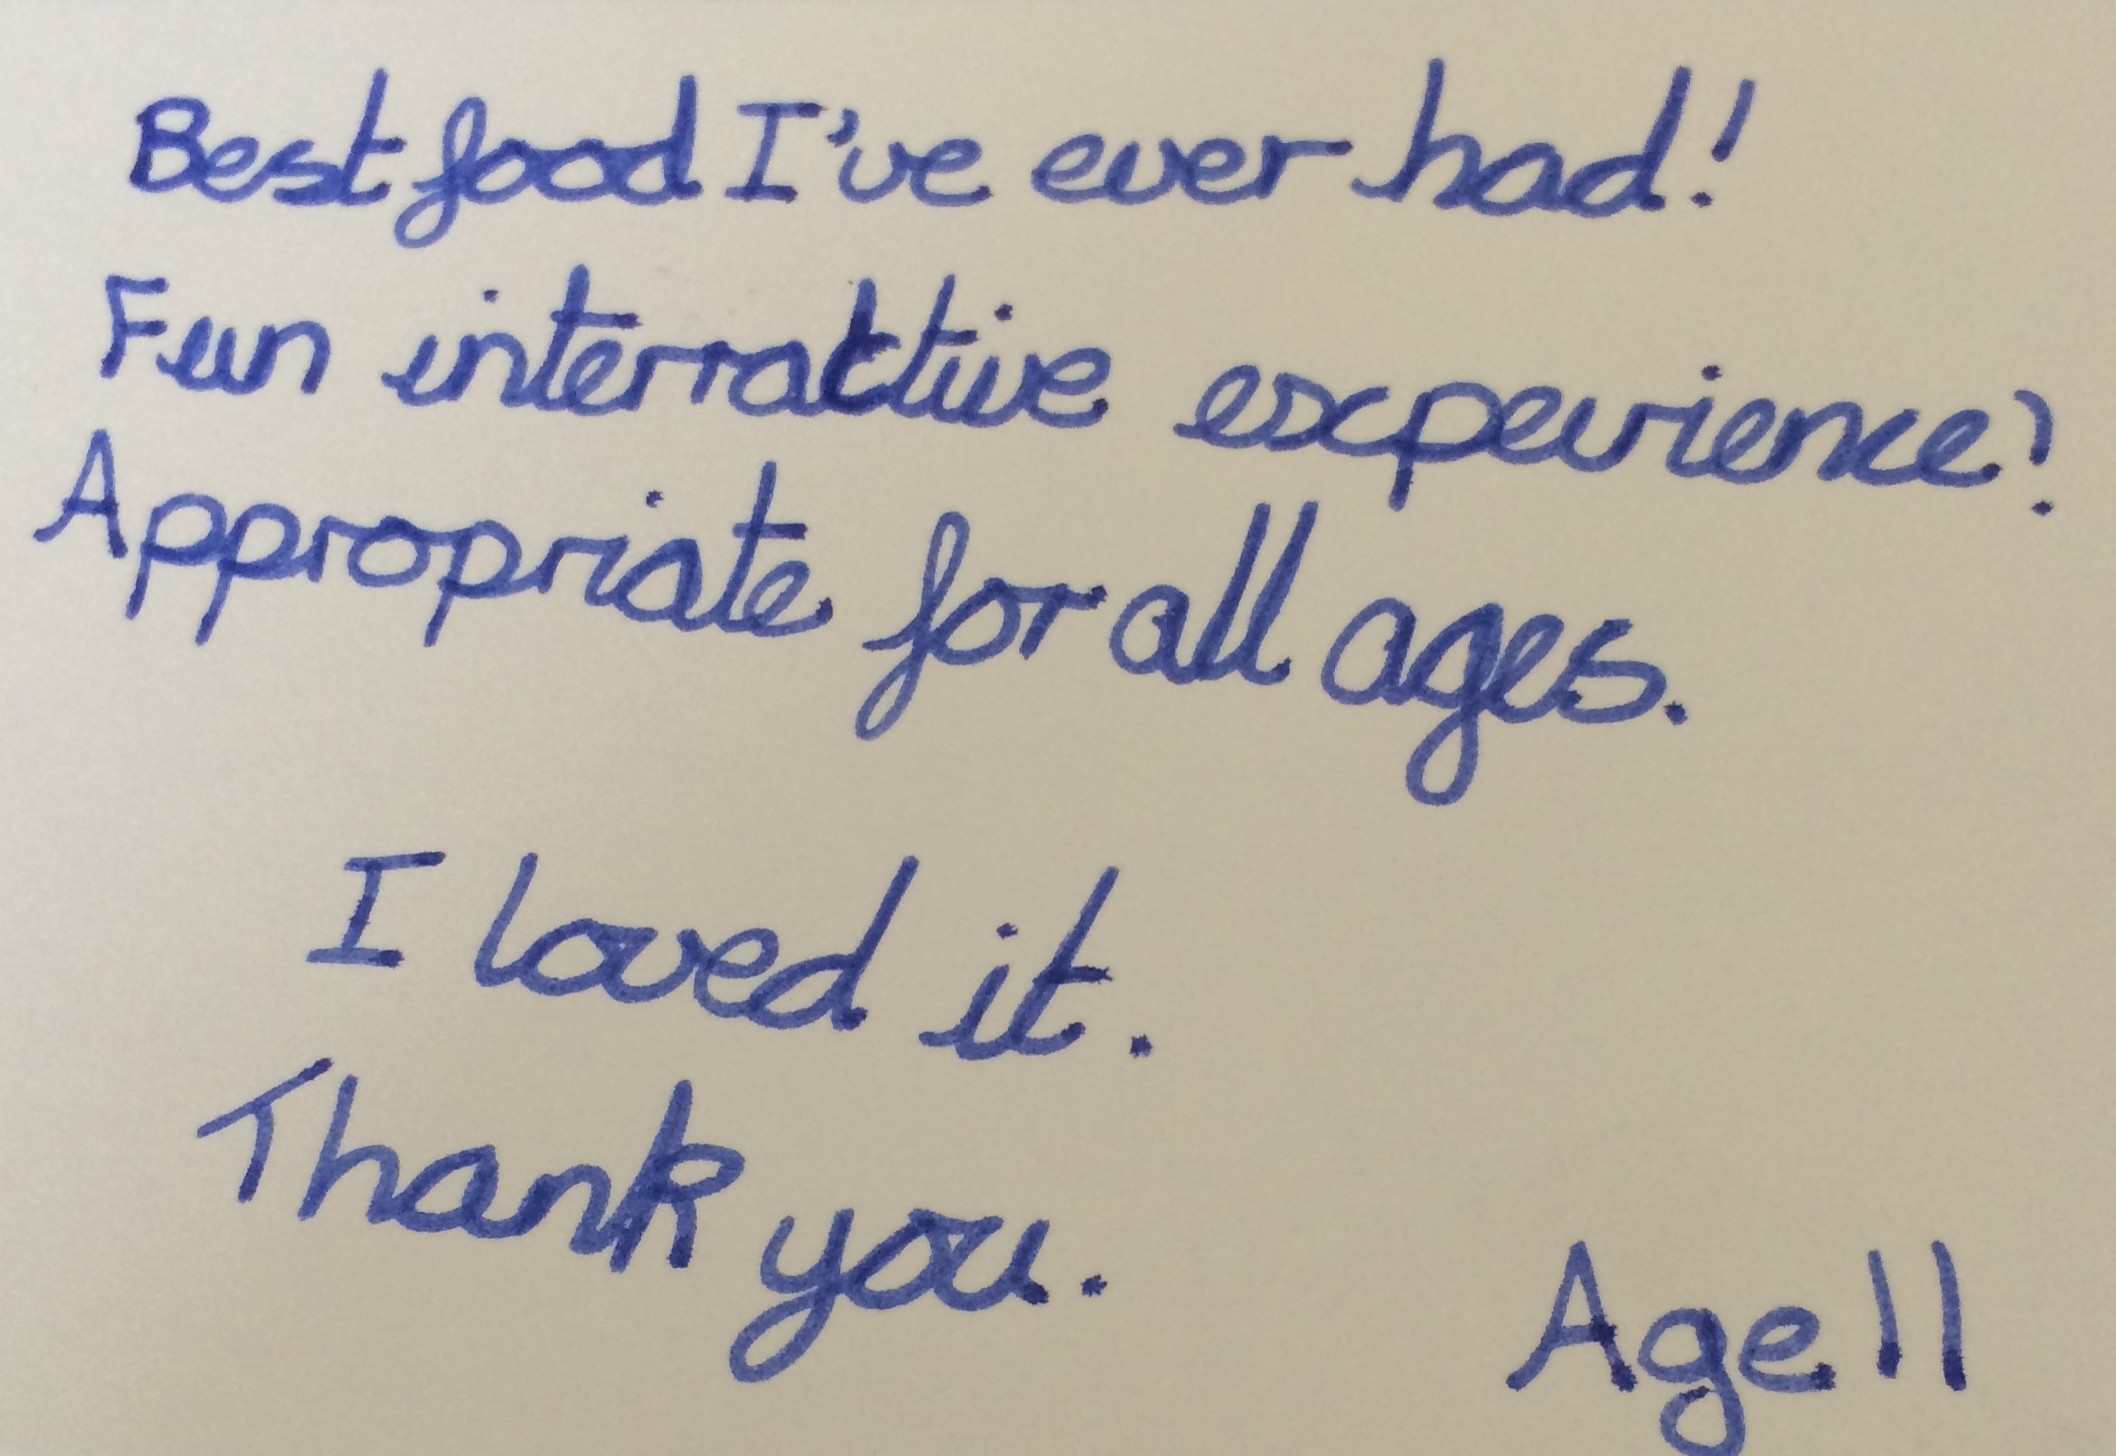 Best food I've ever had!
Fun interractive experience!
Appropriate for all ages.
I loved it.
Thank you.
Age 11